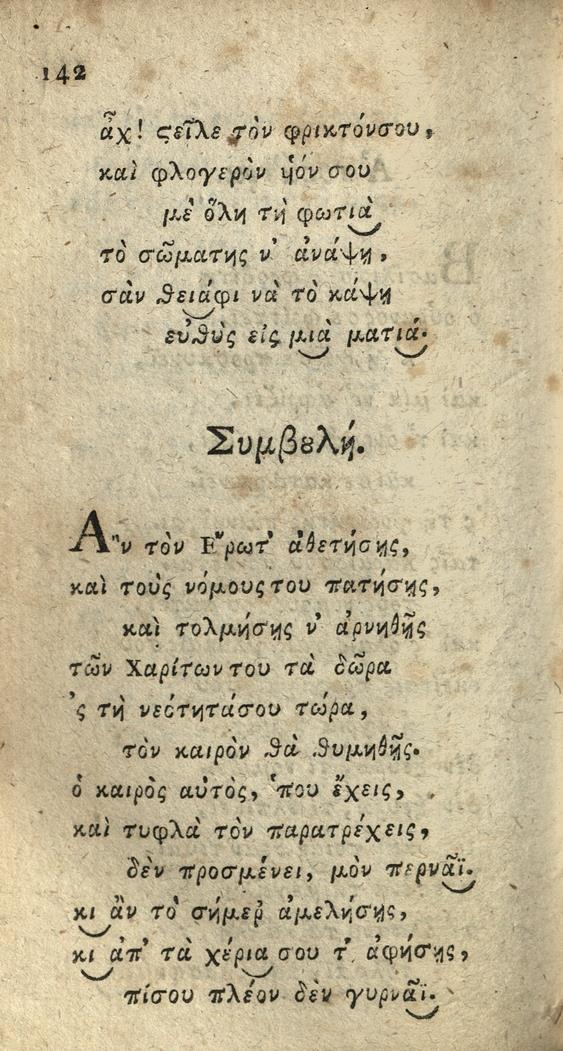 142
ἄχ! ϛεῖλε τὸν φρικτόνσου,
καὶ φλογερὸν ἠόν σου
μὲ ὅλη τὴ φωτιὰ
τὸ σῶματης ν' ἀνάψῃ,
σὰν θειάφι νὰ τὸ κάψῃ
εὐθὺς εἰς μιὰ ματιά.
Συμβȣλή.
Ἂν τὸν Ἔρωτ' ἀθετήσῃς,
καὶ τοὺς νόμους του πατήσῃς,
καὶ τολμήσῃς ν' ἀρνηθῇς
τῶν Χαρίτων του τὰ δῶρα
'ς τὴ νεότητάσου τώρα,
τὸν καιρὸν θὰ θυμηθῇς.
ὁ καιρὸς αὐτὸς, ὁποῦ ἔχεις,
καὶ τυφλὰ τὸν παρατρέχεις,
δὲν προσμένει, μὸν περνᾶϊ.
κι ἂν τὸ σήμερ' ἀμελήσῃς,
κι ἀπ' τὰ χέρια σου τ' ἀφήσῃς,
πίσου πλέον δὲν γυρνᾶϊ.